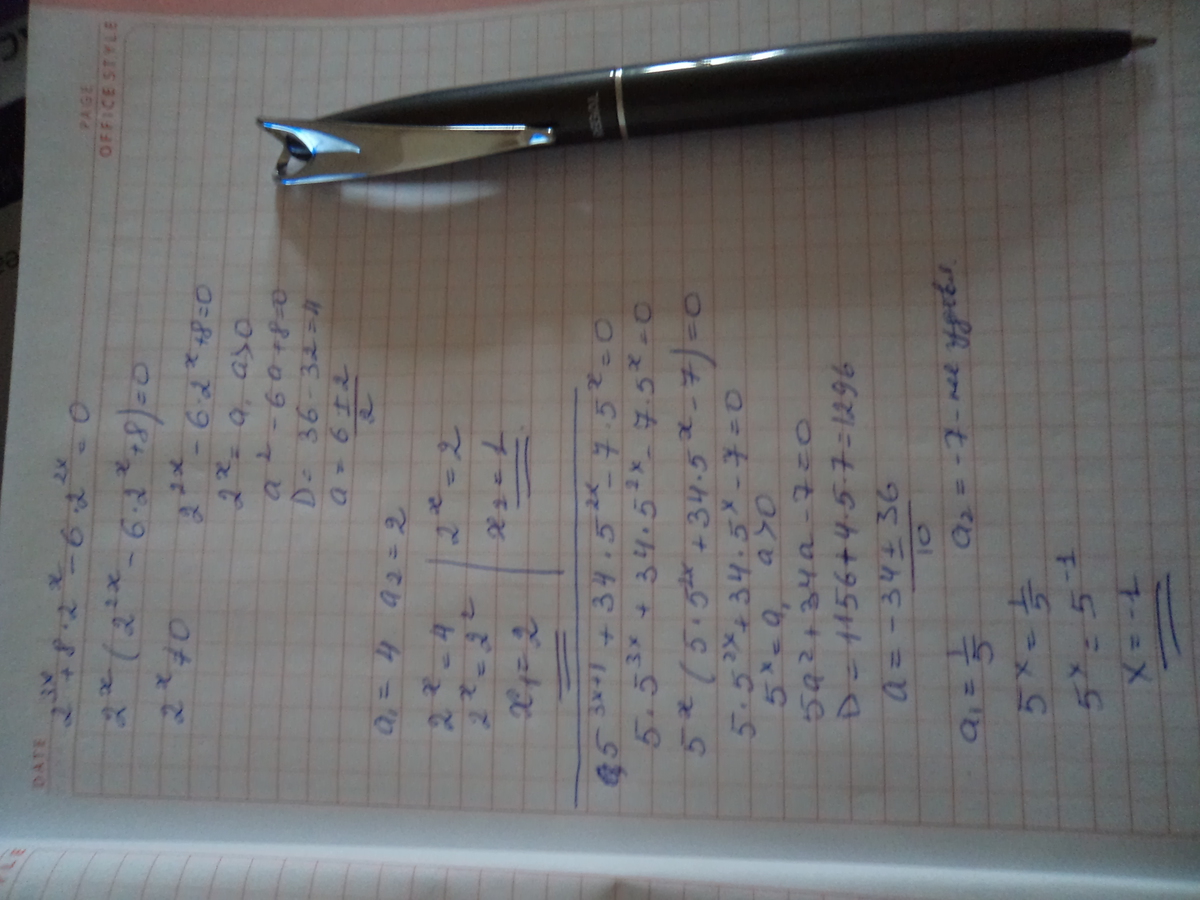 PAGE
OFFICE STYLE
DATE
2^{3x} + 8·2^x - 6·2^{2x} = 0
2^x (2^{2x} - 6·2^x + 8) = 0
2^x ≠ 0
2^{2x} - 6·2^x + 8 = 0
2^x = a, a>0
a^2 - 6a + 8 = 0
D = 36 - 32 = 4
a = \frac{6 ± 2}{2}
a_1 = 4 a_2 = 2
2^x = 4 | 2^x = 2
2^x = 2^2
x_1 = 2 | x_2 = 1
5^{3x+1} + 34·5^{2x} - 7·5^x = 0
5·5^{3x} + 34·5^{2x} - 7·5^x = 0
5^x (5·5^{2x} + 34·5^x - 7) = 0
5·5^{2x} + 34·5^x - 7 = 0
5^x = a, a>0
5a^2 + 34a - 7 = 0
D = 1156 + 4·5·7 = 1296
a = \frac{-34 ± 36}{10}
a_1 = \frac{1}{5} a_2 = -7 - не удовл.
5^x = \frac{1}{5}
5^x = 5^{-1}
x = -1